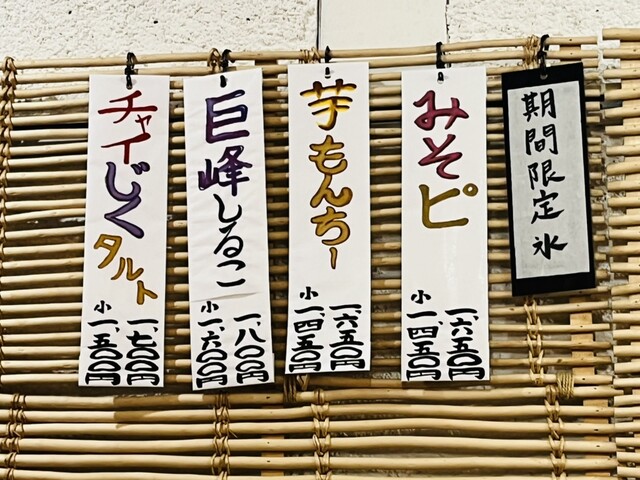 期間限定氷
みそピ
一、六五〇円
小一、四五〇円
芋もんちー
一、六五〇円
小一、四五〇円
巨峰しるこ
一、八〇〇円
小一、六〇〇円
チャイじくタルト
一、七〇〇円
小一、五〇〇円